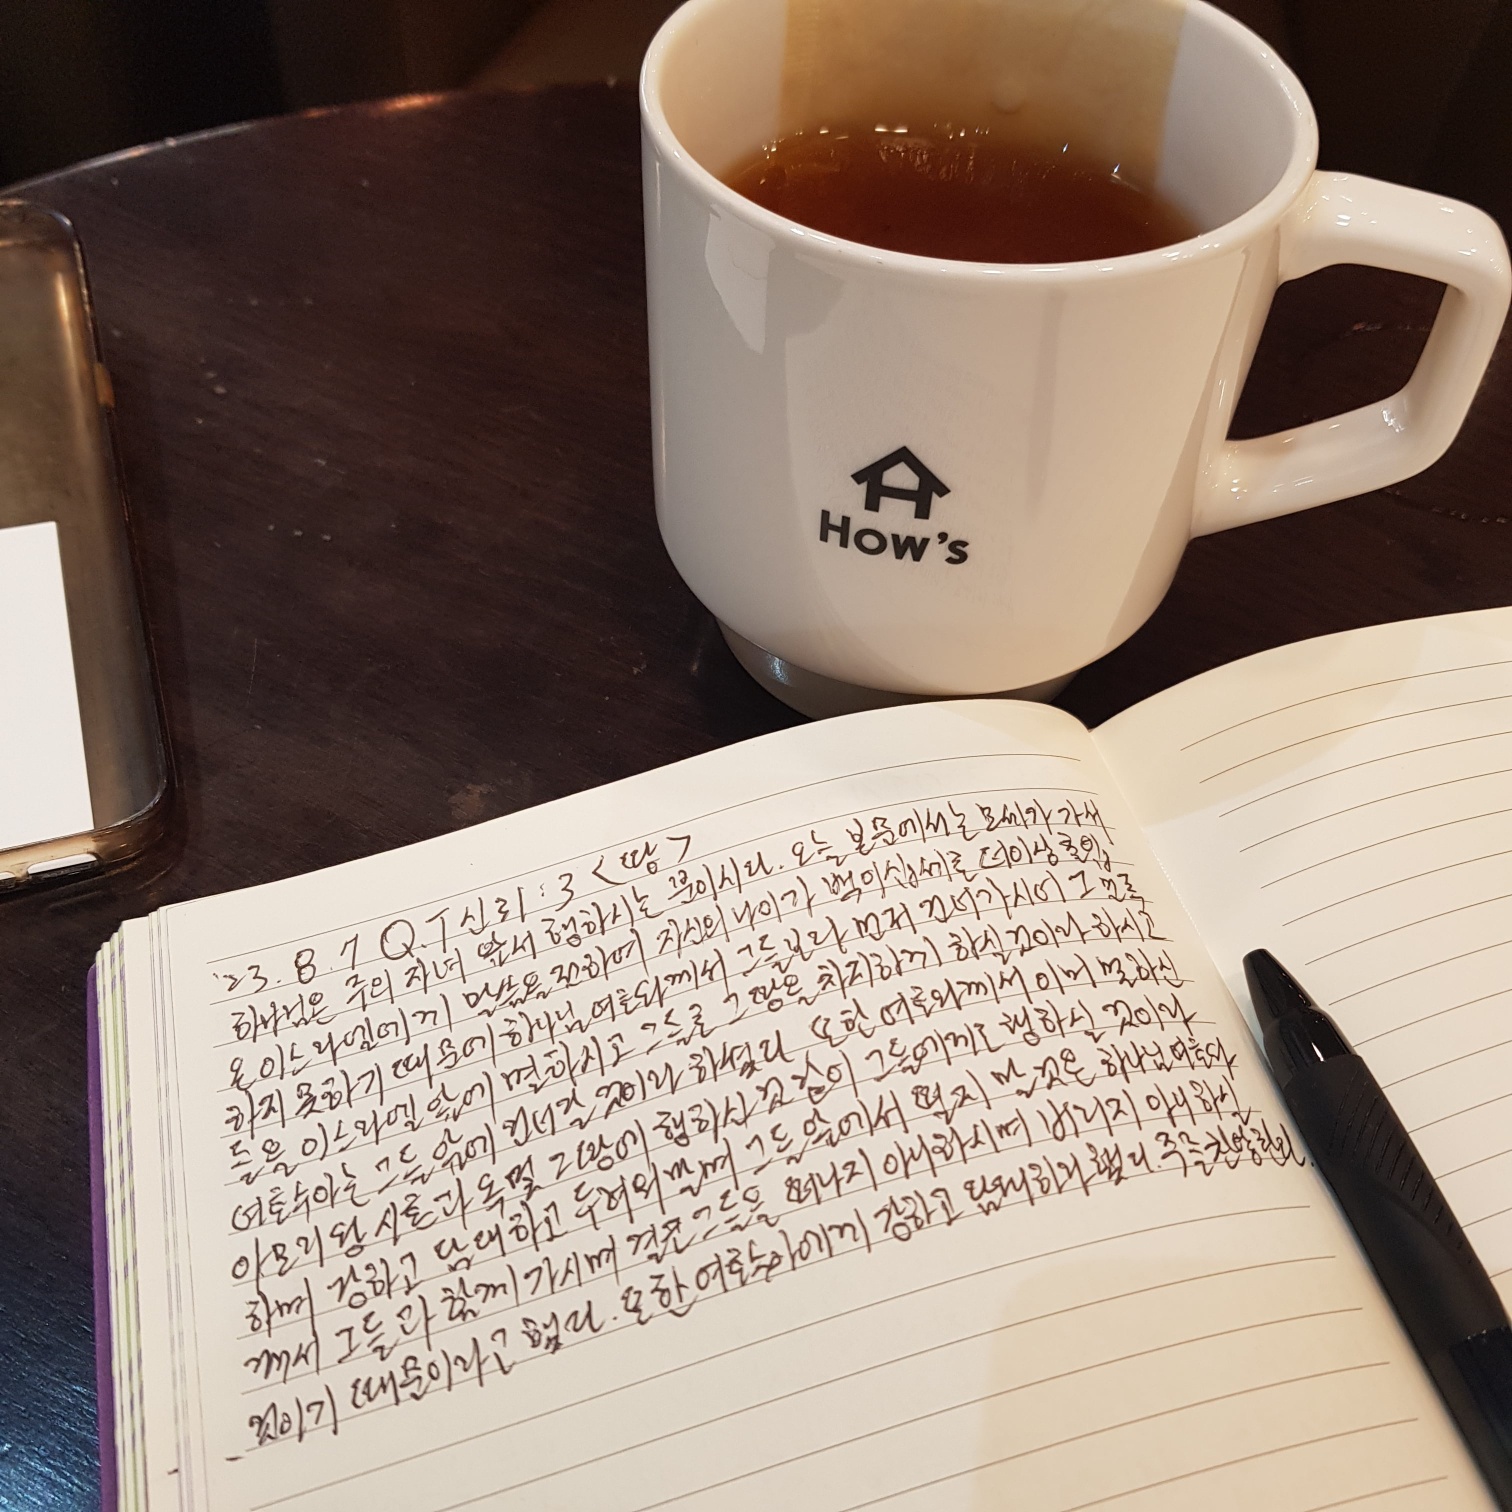 How's
'23. 8. 7 Q.T 신뢰:3 <땅>
하나님은 주의 자녀 앞서 행하시는 분이시다. 오늘 본문에서는 모세가 가서
온 이스라엘에게 말씀을 전하여 자신의 나이가 백이십세로 더이상 출입
하지 못하기 때문에 하나님 여호와께서 그들보다 먼저 건너가시어 그 민족
들을 이스라엘 앞에 멸하시고 그들로 그 땅을 차지하게 하실 것이라 하시고
여호수아는 그들 앞에 건너갈 것이라 하셨다 또한 여호와께서 이미 멸하신
아모리 왕 시혼과 옥및 그 땅에 행하신 것 같이 그들에게도 행하실 것이라
하며 강하고 담대하고 두려워 말며 그들 앞에서 떨지 말 것은 하나님 여호와
께서 그들과 함께 가시며 결코 그들을 떠나지 아니하시며 버리지 아니하실
것이기 때문이라고 했다. 또한 여호수아에게 강하고 담대하라 했다. 주를 찬양한다.